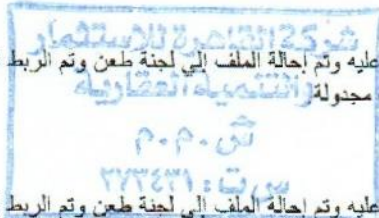 شركة القاهرة للاستثمار
عليه وتم إحالة الملف إلي لجنة طعن وتم الربط
والتنمية العقارية
مجدولة
ش.م.م
س.ت: ٢٧٣٤٣١
عليه وتم إحالة الملف إلي لجنة طعن وتم الربط